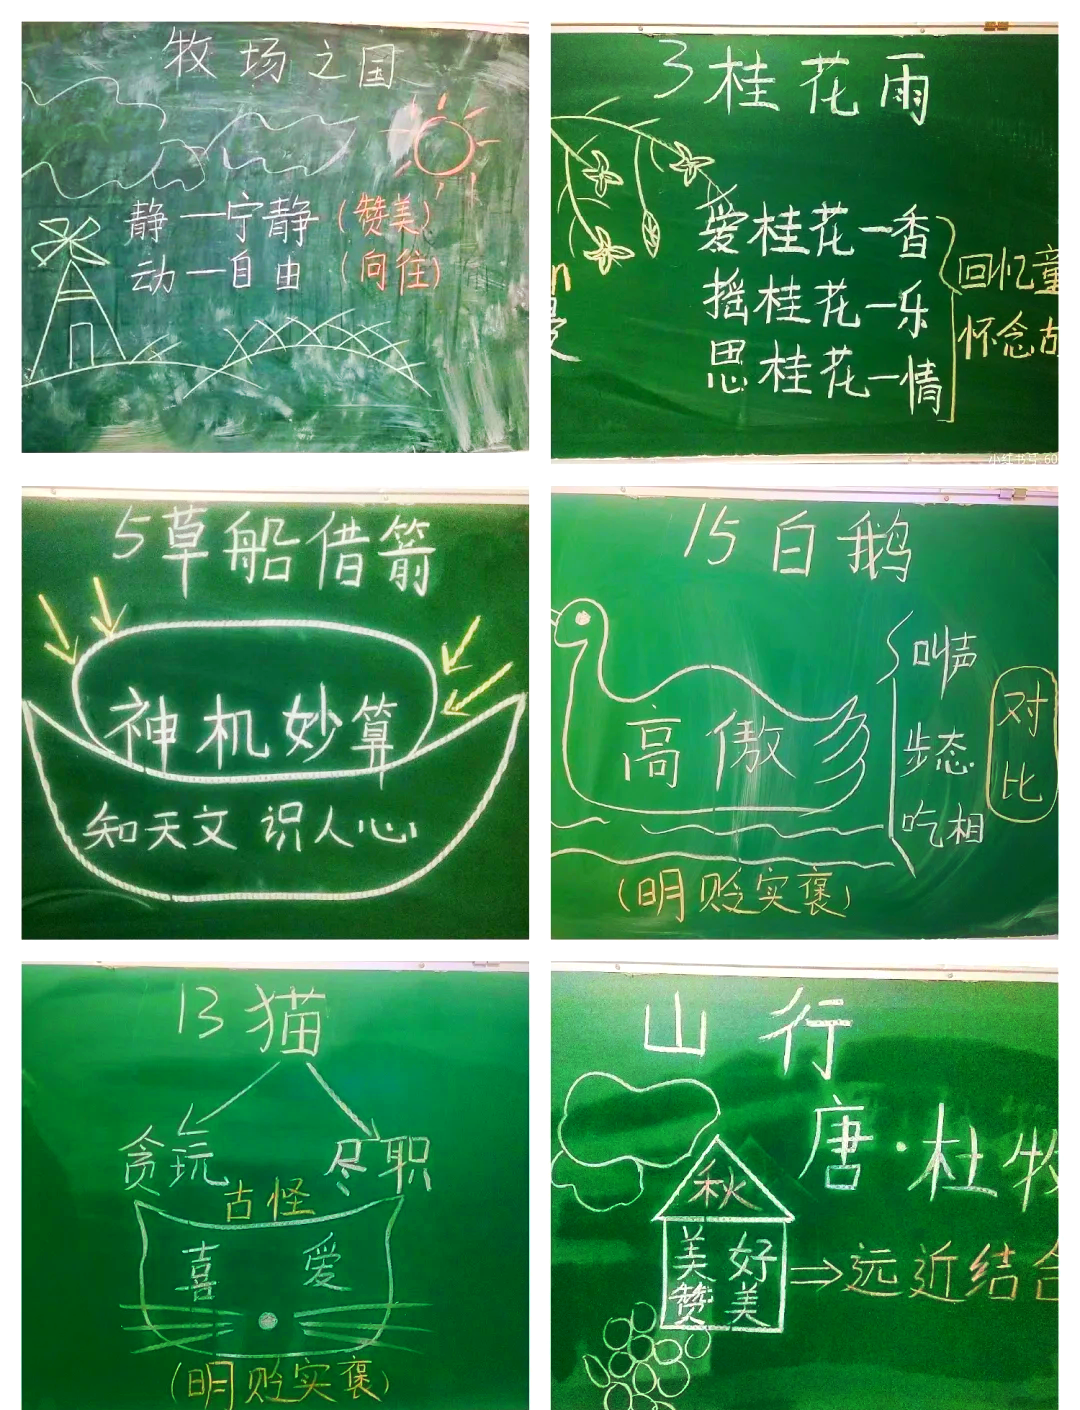 牧场之国
静一宁静(赞美)
动一自由(向往)
3桂花雨
爱桂花一香
摇桂花一乐
思桂花一情
回忆童
怀念故
5草船借箭
神机妙算
知天文 识人心
15白鹅
高傲
叫声
步态
吃相
对比
(明贬实褒)
13猫
贪玩
尽职
古怪
喜爱
(明贬实褒)
山行
唐·杜牧
秋
美好
赞美
⇒远近结合